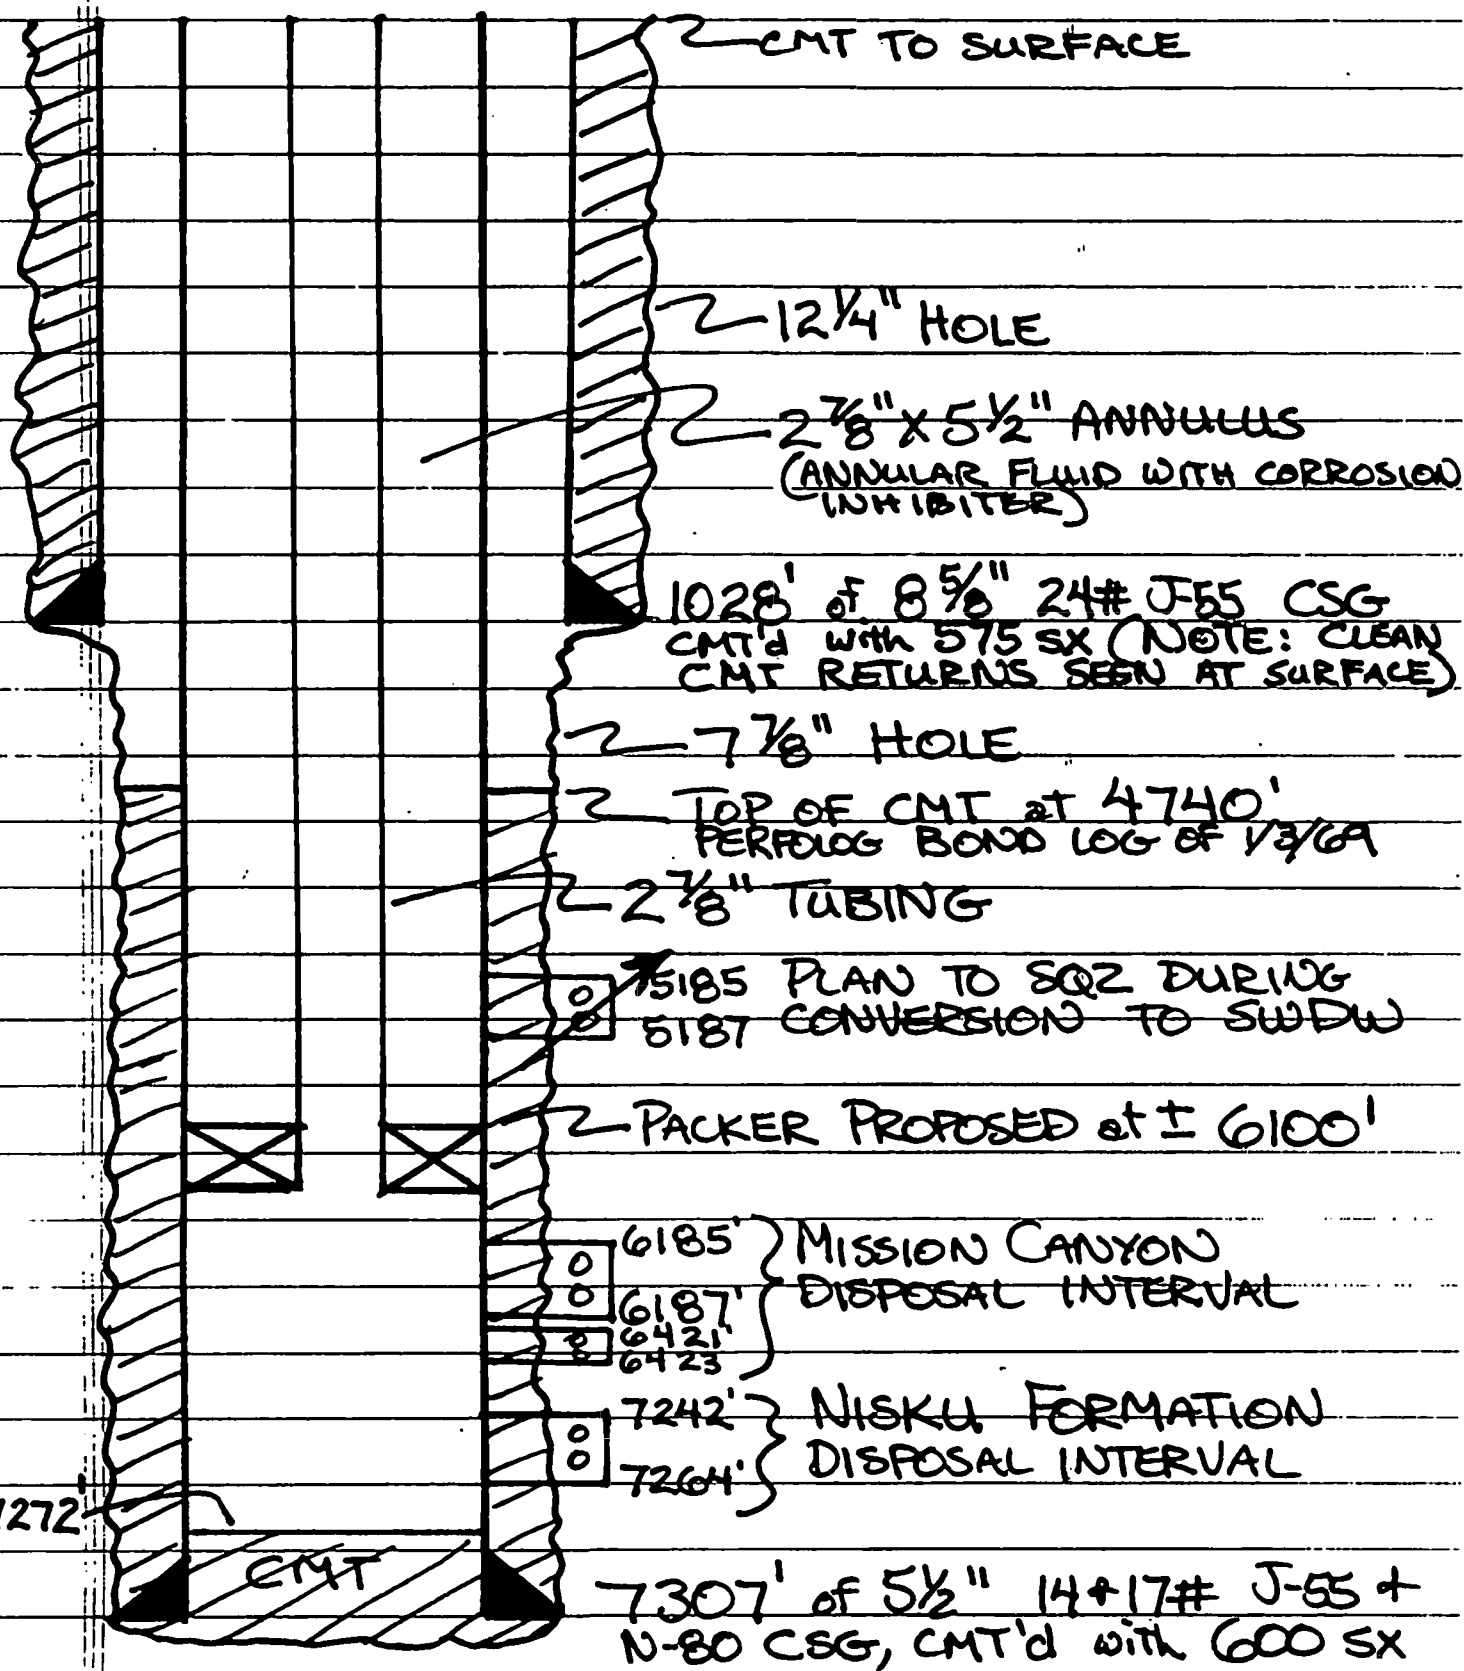 CMT TO SURFACE
12 1/4" HOLE
2 7/8" X 5 1/2" ANNULUS
(ANNULAR FLUID WITH CORROSION
INHIBITER)
1028' of 8 5/8" 24# J-55 CSG
CMT'd with 575 SX (NOTE: CLEAN
CMT RETURNS SEEN AT SURFACE)
7 7/8" HOLE
TOP OF CMT at 4740'
PERFOLOG BOND LOG OF 1/3/69
2 7/8" TUBING
5185 PLAN TO SQZ DURING
5187 CONVERSION TO SWDW
PACKER PROPOSED at ± 6100'
6185' MISSION CANYON
DISPOSAL INTERVAL
6187'
6421'
6423
7242' NISKU FORMATION
DISPOSAL INTERVAL
7264'
7272'
CMT
7307' of 5 1/2" 14 + 17# J-55 +
N-80 CSG, CMT'd with 600 SX